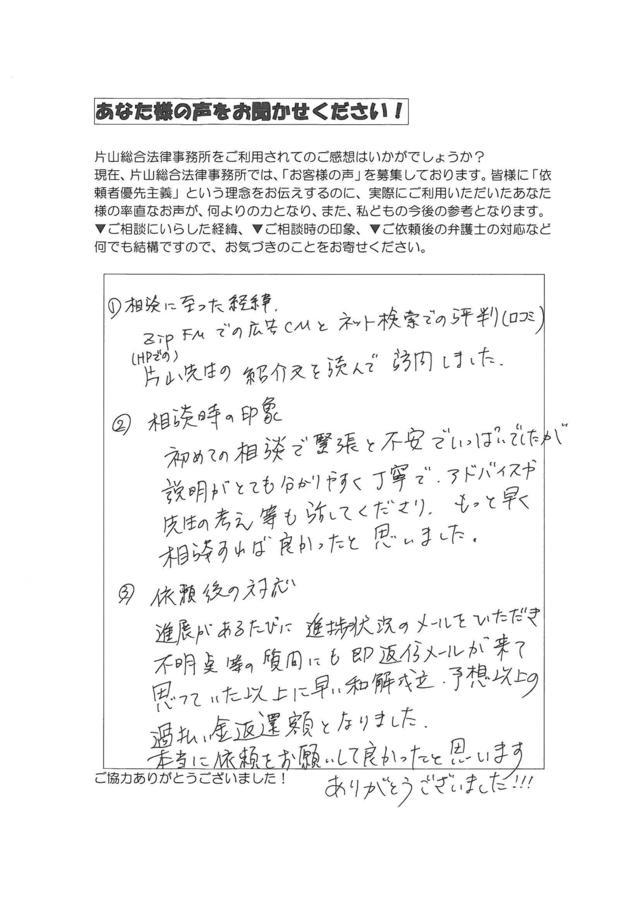 あなた様の声をお聞かせください！
片山総合法律事務所をご利用されてのご感想はいかがでしょうか？
現在、片山総合法律事務所では、「お客様の声」を募集しております。皆様に「依
頼者優先主義」という理念をお伝えするのに、実際にご利用いただいたあなた
様の率直なお声が、何よりの力となり、また、私どもの今後の参考となります。
▼ご相談にいらした経緯、▼ご相談時の印象、▼ご依頼後の弁護士の対応など
何でも結構ですので、お気づきのことをお寄せください。
①相談に至った経緯.
Zip FMでの広告CMとネット検索での評判(口コミ)
(HPでの)
片山先生の紹介文を読んで訪問しました.
② 相談時の印象
初めての相談で緊張と不安でいっぱいでしたが
説明がとても分かりやすく丁寧で.アドバイスや
先生の考え等も話してくださり.もっと早く
相談すれば良かったと思いました。
③ 依頼後の対応
進展があるたびに進捗状況のメールをいただき
不明点等の質問にも即返信メールが来て
思っていた以上に早い和解成立.予想以上の
過払い金返還額となりました.
本当に依頼をお願いして良かったと思います
ありがとうございました!!!
ご協力ありがとうございました！